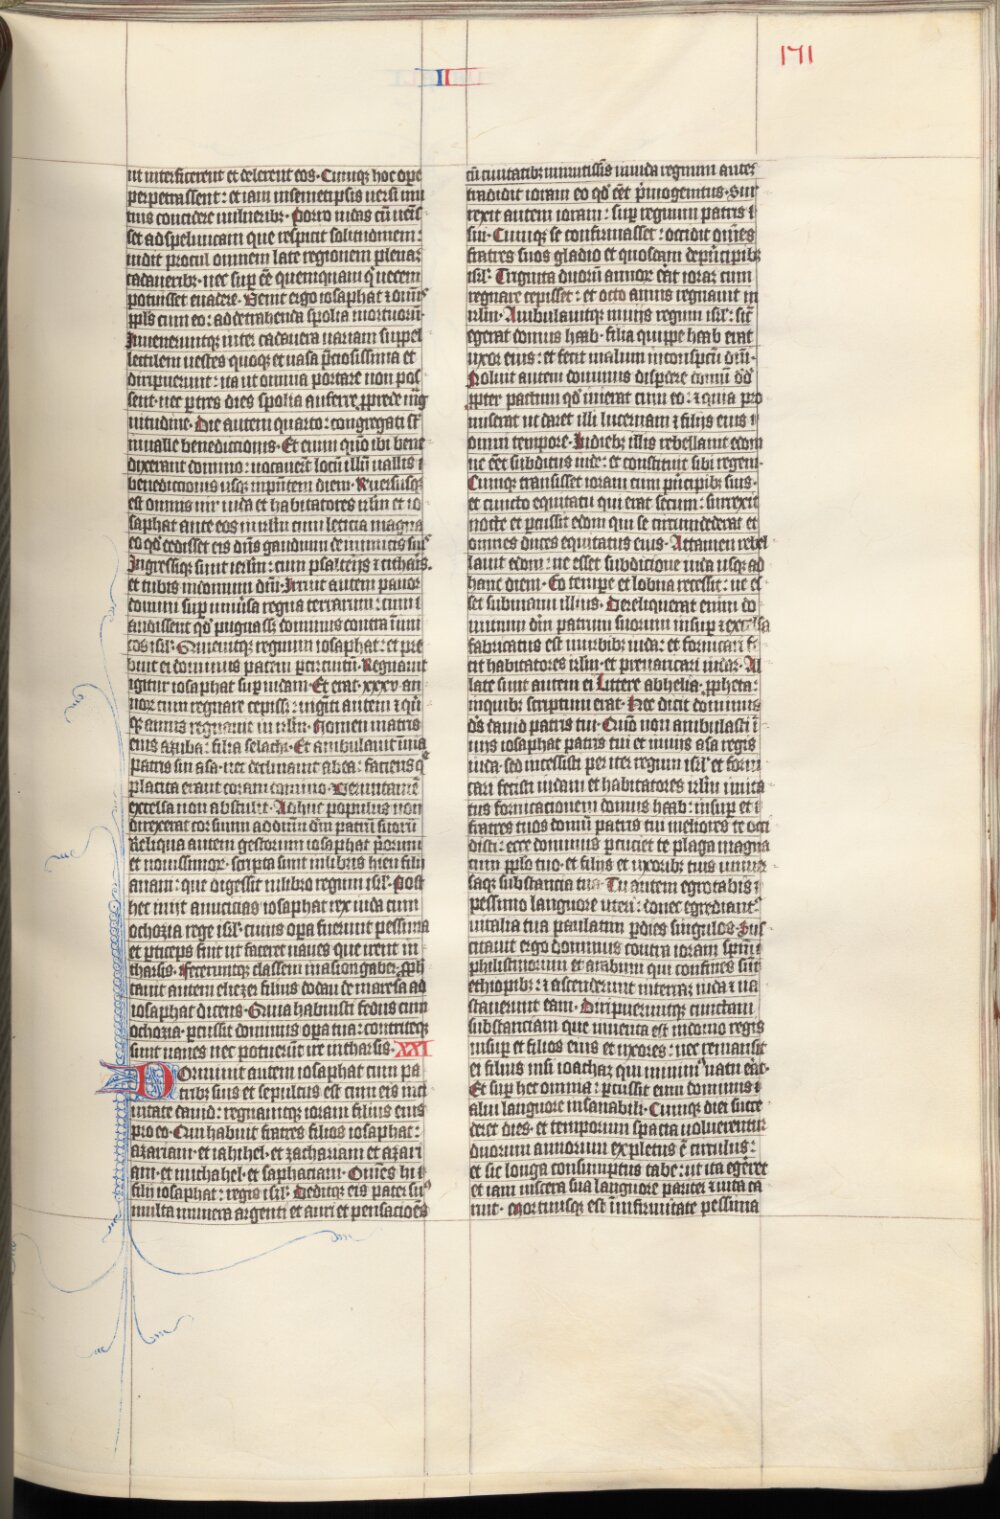 171
II
ut interficerent et delerent eos. Cumqȝ hoc opé
perpetrassent: et iam insemetipsis uersi mu
tuis concidere uulneribȝ. Porro iudas cū uenis
set ad speluncam que respicit solitudinem:
uidit procul omnem late regionem plenaȝ
cadaueribȝ. nec supēē quemquam q' necem
potuisset euadere. Venit ergo iosaphat ⁊ omnis
ppls cum eo: addetrahenda spolia mortuorū.
Inueneruntqȝ inter cadauera uariam suppel
lectilem uestes quoqȝ et uasa p̄ciosissima et
diripuerunt: ita ut omnia portare non pos
sent. nec p tres dies spolia auferre p prede mag
nitudine. Die autem quarto: congregati sūt
inualle benedictionis. Et enim quō ibi bene
dixerant domino: uocauerūt locū illū uallis
benedictionis usqȝ inp̄ntem diem. Reuersusqȝ
est omnis uir iuda et habitatores irlm et io
saphat ante eos inirlm cum leticia magna
eo qd̄ dedisset eis dn̄s gaudium de inimicis suis
Ingressiqȝ sunt ierlm: cum psalterijs ⁊ citharis.
et tubis indomum dn̄i. Irruit autem pauor
domini sup uniūsa regna terrarum: cum
audissent qd̄ pugnassȝ dominus contra inimi
cos isrl. Quieuitqȝ regnum iosaphat: et pre
buit ei dominus pacem per circuitū. Regnauit
igitur iosaphat sup iudam. Et erat .xxxv. an
noȝ cum regnare cepissȝ: uiginti autem ⁊ qn
qȝ annis regnauit in irlm. Nomen matris
eius azuba: filia selachi. Et ambulauit in uia
patris sui asa. nec declinauit abea: faciens q̄
placita erant coram domino. Verumtamē
excelsa non abstulit. Adhuc populus non
direxerat cor suum ad dominū dm̄ patrū suorū
Reliqua autem gestorum iosaphat p̄orum
et nouissimoȝ. scripta sunt inlibris hieu filij
anani: que digessit inlibro regum isrl. Post
hec iniit amicicias iosaphat rex iuda cum
ochozia rege isrl. cuius opa fuerunt pessima
et pticeps fuit ut faceret naues que irent in
tharsis. feceruntqȝ classem inasiongaber. pph
tauit autem eliezer filius dodau de maresa ad
iosaphat dicens. Quia habuisti fedus cum
ochozia. pcussit dominus opa tua: contriteqȝ
sunt naues nec potuerūt ire intharsis. XXI
Dormiuit autem iosaphat cum pa
tribȝ suis et sepultus est cum eis inci
uitate dauid: regnauitqȝ ioram filius eius
pro eo. Qui habuit fratres filios iosaphat:
azariam. et iahihel. et zachariam et azari
am. et michahel. et saphaciam. Omēs hi
filij iosaphat: regis isrl. Deditqȝ eis pater suꝰ
multa munera argenti et auri et pensacioēs
cū ciuitatibȝ munitissīs iniuda regnum autē
tradidit ioram eo qd̄ eēt p̄mogenitus. Sur
rexit autem ioram: sup regnum patris
sui. Cumqȝ se confirmasset: occidit omēs
fratres suos gladio et quosdam de p̄ncipibȝ
isrl. Triginta duorū annoȝ erat ioram cum
regnare cepisset: et octo annis regnauit in
irlm. Ambulauitqȝ inuijs regum isrl: sic̄
egerat domus hcab. filia quippe hcab erat
uxor eius: et fecit malum inconspectū dn̄i.
Noluit autem dominus disperdere domū dd̄
propter pactum qd̄ inierat cum eo: ⁊ quia pro
miserat ut daret illi lucernam ⁊ filijs eius
omni tempore. Indiebȝ illis rebellauit edom
ne eēt subditus iude: et constituit sibi regem.
Cumqȝ transisset ioram cum p̄ncipibȝ suis.
et cuncto equitatu qui erat secum: surrexit
nocte et pcussit edom qui se circumdederat et
omnes duces equitatus eius. Attamen rebel
lauit edom: ne esset subdicione iuda usqȝ ad
hanc diem. Eo tempe et lobna recessit: ne es
set submanu illius. Dereliquerat enim do
minum dm̄ patrum suorum insup ⁊ excelsa
fabricatus est inurbibȝ iuda: et fornicari fe
cit habitatores irlm et preuaricari iudaȝ. Al
late sunt autem ei littere abhelia. ppheta:
inquibȝ scriptum erat. Hec dicit dominus
ds̄ dauid patris tui. Quō non ambulasti
uijs iosaphat patris tui et inuijs asa regis
iuda. sed incessisti per iter regum isrl et forni
cari fecisti iudam et habitatores irlm imita
tus fornicationem domus hcab: insup et
fratres tuos domū patris tui meliores te occi
disti: ecce dominus pcuciet te plaga magna
cum pplo tuo. et filijs et uxoribȝ tuis uniuer
saqȝ substancia tua. Tu autem egrotabis
pessimo languore uteri: donec egrediant̄
uitalia tua paulatim p dies singulos. Sus
citauit ergo dominus contra ioram spm̄
philistinorum et arabum qui confines sūt
ethiopibȝ: ⁊ ascenderunt interram iuda ⁊ ua
stauerunt eam. Diripueruntqȝ cunctam
substanciam que inuenta est indomo regis
insup et filios eius et uxores: nec remansit
ei filius nisi ioachaz qui minimꝰ natu erat.
Et sup hec omnia: pcussit eum dominus
alui languore insanabili. Cumqȝ diei succe
deret dies. et temporum spacia uoluerentur
duorum annorum expletus ē circulus:
et sic longa consumptus tabe: ut ita egēret
et iam uiscera sua languore pariter ⁊ uita ca
ruit. Mortuusqȝ est ī infirmitate pessima